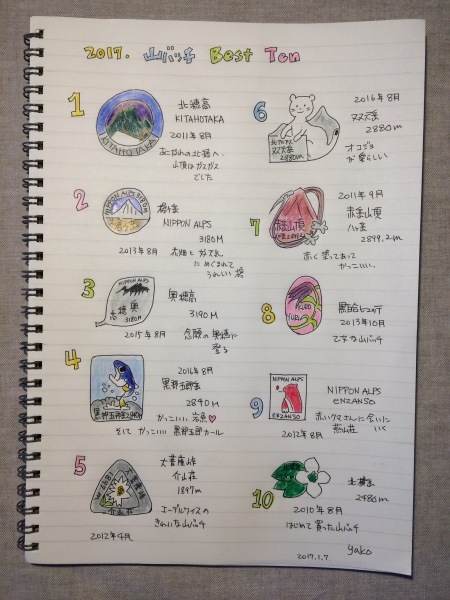 2017. 山バッチ Best Ten
1
北穂高
KITAHOTAKA
2011年8月
あこがれの北穂へ
山頂はガスガス
でした
KITAHOTAKA
2
NIPPON ALPS 3180M
槍ヶ岳
NIPPON ALPS
3180M
2013年8月
お花畑と
にめぐまれて
うれしい 槍
3
NIPPON ALPS
奥穂高
3190M
奥穂高
3190M
2015年8月 念願の奥穂に
登る
4
2014年8月
黒部五郎岳
2840M
黒部五郎岳2840M
かっこいい 岩魚♡
そして かっこいい 黒部五郎カール
5
大菩薩峠
介山荘
1897m
介山荘
エーデルワイスの
きれいな山バッチ
2012年4月
6
2016年8月
双六岳
2860m
北アルプス
双六岳
2860m
オコジョ
が愛らしい
7
2011年9月
赤岳山頂
八ヶ岳
2899.2m
赤岳山頂
赤く塗ってあって
かっこいい.
8
KURO
YURI
黒百合ヒュッテ
2013年10月
乙女な山バッチ
9
NIPPON ALPS
ENZANSO
NIPPON ALPS
ENZANSO
赤いクマさんに会いに
いく
燕山荘
2012年8月
10
北横岳
2480m
2010年8月
はじめて買った山バッチ
2017.1.7 yako